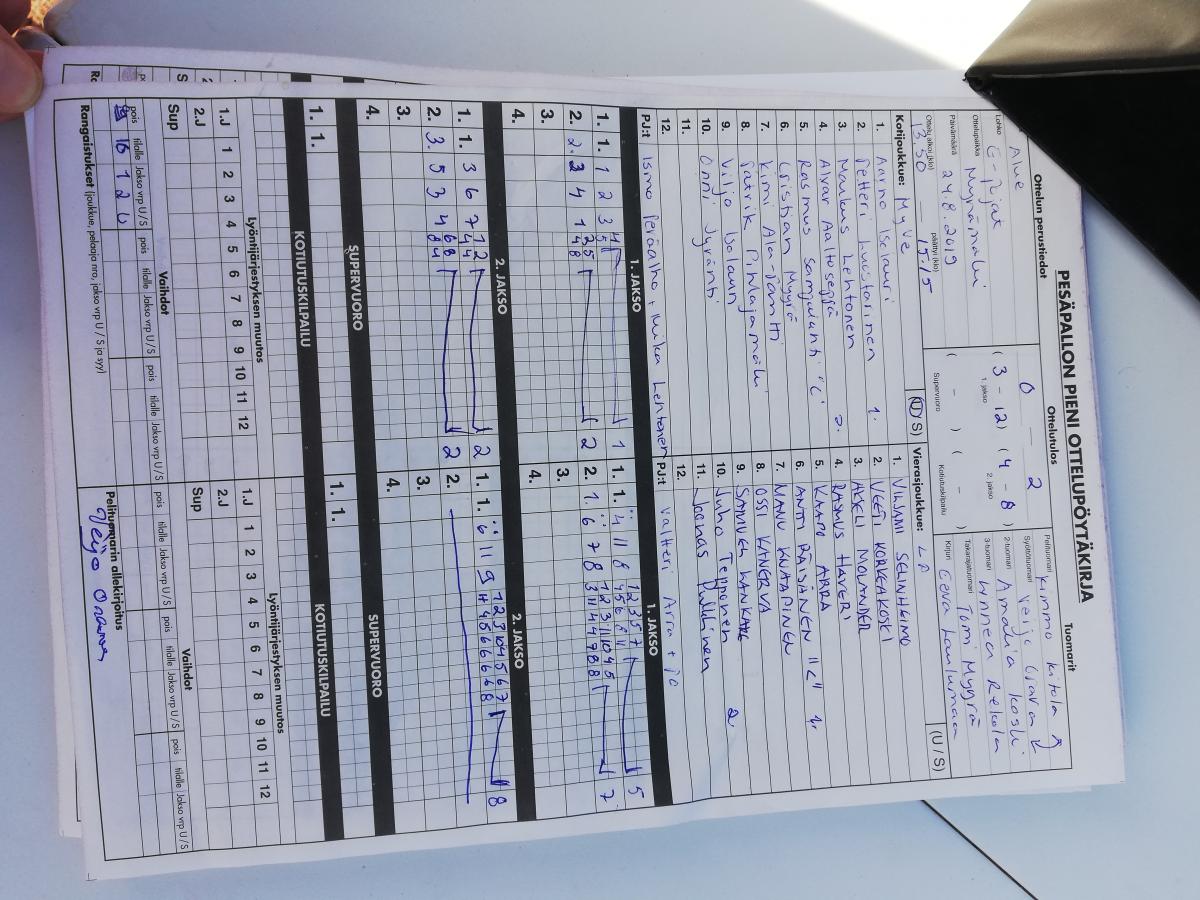 PESÄPALLON PIENI OTTELUPÖYTÄKIRJA
Ottelun perustiedot
Ottelutulos
Tuomarit
Alue
0 — 2
Pelituomari Kimmo Kitola
Lohko G-pojat
( 3 - 12 ) ( 4 - 8 )
1. jakso 2. jakso
Syöttötuomari Veijo
Ottelupaikka Mynämäki
2-tuomari Amalia Koski
Päivämäärä 24.8.2019
( - ) ( - )
Supervuoro Kotiutuskilpailu
3-tuomari Linnea Rekola
Takarajatuomari Tomi Myyrä
Ottelu alkoi (klo) 13.50 — päättyi (klo) 15.15
Kirjuri Eeva
Kotijoukkue: MyVe (U/S)
1. Aarno Isolauri
2. Petteri Luostarinen 1.
3. Maukus Lehtonen
4. Alvar Aaltoseppä 2.
5. Rasmus "C"
6. Cristian Myyrä
7. Kimi Ala-Päntti
8. Patrik Pihlajamäki
9. Viljo Isolauri
10. Onni Jyräntti
11.
12.
PJ:t Ismo Peräalho + Mika Lehtonen
Vierasjoukkue: LP (U/S)
1. VILJAMI SELINHEIMO
2. VEETI KORVEAKOSKI
3. AKSELI MOLANDER
4. RASMUS HAVERI
5. KAAPO ARRA 1.
6. ANTTI RÄISÄNEN "C"
7. MANU KNAAPINEN
8. OSSI KANERVA
9. SAMUEL KANKARE
10. Juho Tepponen 2
11. Joonas Pulkkinen
12.
PJ:t Valtteri Arra +
1. JAKSO
1. 1. 1 2 3 4 5 1
2. 2. 2 4 1 3 5 4 8 2
3.
4.
2. JAKSO
1. 1. 3 6 7 1 2 4 4 2
2. 3. 5 3 4 6 8 8 4 2
3.
4.
SUPERVUORO
1. 1.
KOTIUTUSKILPAILU
1. JAKSO
1. 1. 4 11 8 1 2 3 5 7 4 5 6 8 11 5
2. 1. 6 7 8 1 2 3 11 10 4 5 3 11 4 4 7 8 8 7
3.
4.
2. JAKSO
1. 1. 6 11 9 1 2 3 10 4 5 6 7 11 4 5 6 6 6 6 8 8
2.
3.
4.
SUPERVUORO
1. 1.
KOTIUTUSKILPAILU
Lyöntijärjestyksen muutos
1.J 1 2 3 4 5 6 7 8 9 10 11 12
2.J
Sup
Vaihdot
pois tilalle Jakso vrp U/S pois tilalle Jakso vrp U/S pois tilalle Jakso vrp U/S
16 1 2 U
Lyöntijärjestyksen muutos
1.J 1 2 3 4 5 6 7 8 9 10 11 12
2.J
Sup
Vaihdot
pois tilalle Jakso vrp U/S pois tilalle Jakso vrp U/S pois tilalle Jakso vrp U/S
Rangaistukset (joukkue, pelaaja nro, jakso vrp U / S ja syy)
Pelituomarin allekirjoitus